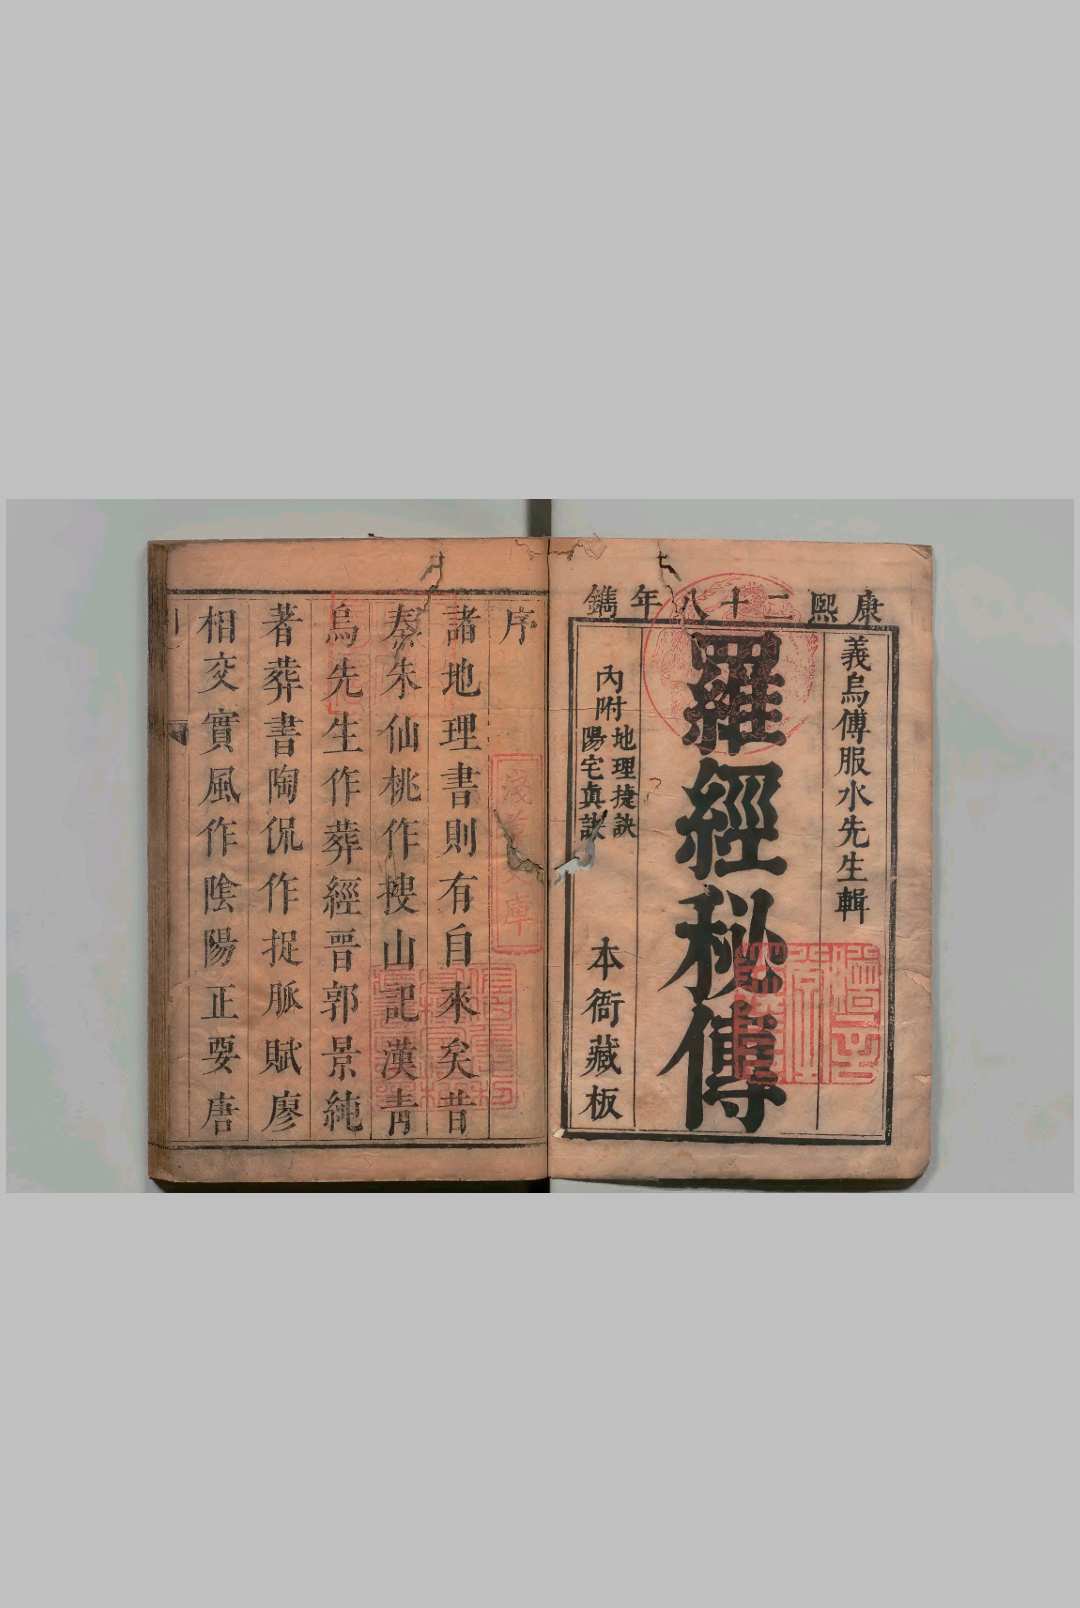 康熙二十八年鐫
義烏傅服水先生輯
羅經秘傳
內附
地理捷訣
陽宅真訣
本衙藏板
序
諸地理書則有自來矣昔
秦朱仙桃作搜山記漢青
烏先生作葬經晉郭景純
著葬書陶侃作捉脈賦廖
相交實風作陰陽正要唐
淺草文庫